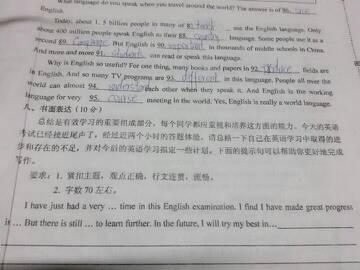 What language do you speak when you travel around the world? For answer is of 86.
English.
Today, about 1. 5 billion people in many of 87. use the English language. Only
about 400 million people speak English as their 88. country language. Some people use it as a
second 89. Language. But English is 90. important in thousands of middle schools in China.
And more and more 91. students can read or speak this language.
Why is English so useful? For one thing, many books and papers in 92. fields are
in English. And so many TV programs are 93. different in this language. People all over the
world can almost 94. understand each other when they speak it. And English is the working
language for very 95. course meeting in the world. Yes, English is really a world language.
八、书面表达（10分）
总结是有效学习的重要组成部分，每个同学都应重视和培养这方面的能力。今天的英语
考试已经接近尾声了，经过近两个小时的答题体验，请总结一下自己在英语学习中取得的进
步和存在的不足，并对今后的英语学习拟定一些计划。下面的提示句可以帮助你更好地完成
写作。
要求：1. 紧扣主题，观点正确，行文连贯、流畅。
2. 字数70左右。
I have just had a very … time in this English examination. I find I have made great progress
in … But there is still … to learn further. In the future, I will try my best in…